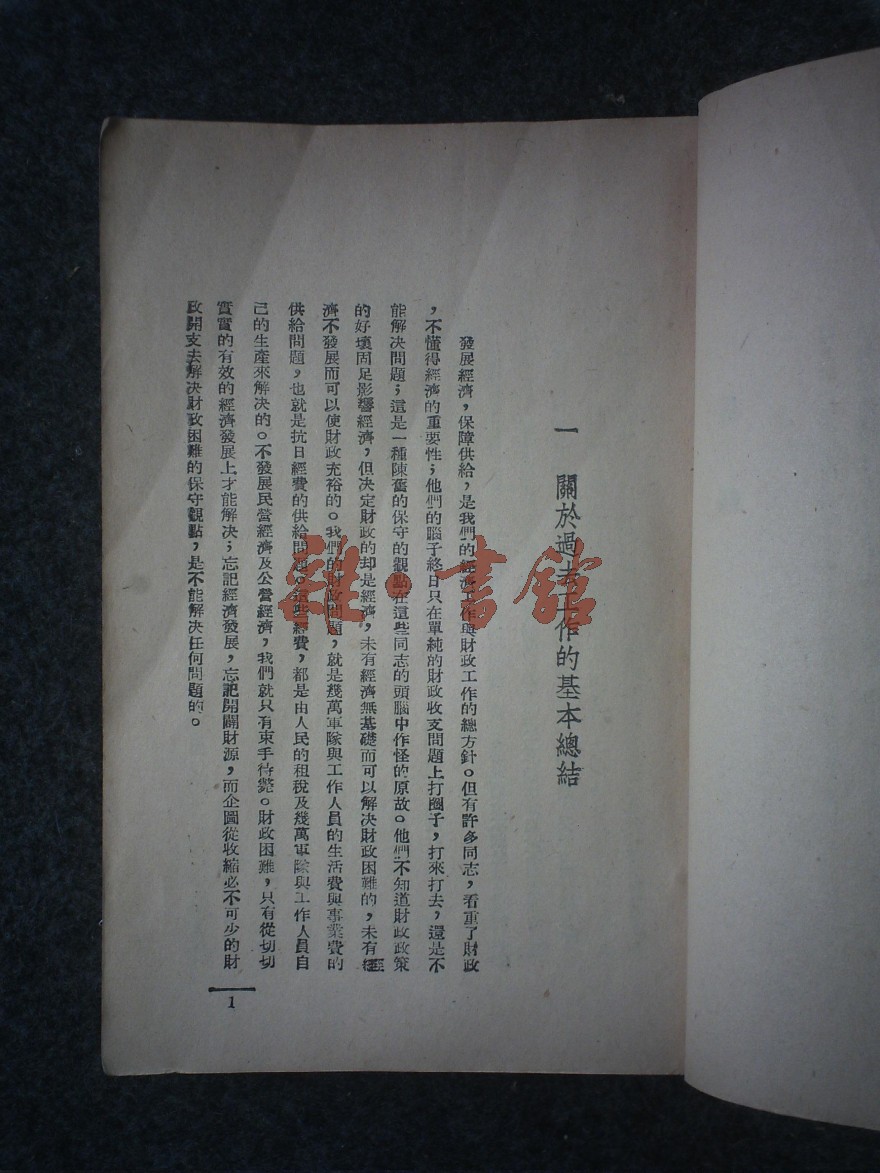 一　關於過去工作的基本總結
發展經濟，保障供給，是我們的經濟工作與財政工作的總方針。但有許多同志，看重了財政
，不懂得經濟的重要性；他們的腦子終日只在單純的財政收支問題上打圈子，打來打去，還是不
能解决問題；這是一種陳舊的保守的觀點在這些同志的頭腦中作怪的原故。他們不知道財政政策
的好壞固足影響經濟，但决定財政的却是經濟，未有經濟無基礎而可以解决財政困難的，未有經
濟不發展而可以使財政充裕的。我們的財政問題，就是幾萬軍隊與工作人員的生活費與事業費的
供給問題，也就是抗日經費的供給問題。這些經費，都是由人民的租稅及幾萬軍隊與工作人員自
己的生產來解决的。不發展民營經濟及公營經濟，我們就只有束手待斃。財政困難，只有從切切
實實的有效的經濟發展上才能解决；忘記經濟發展，忘記開闢財源，而企圖從收縮必不可少的財
政開支去解决財政困難的保守觀點，是不能解决任何問題的。
1
雜·書館